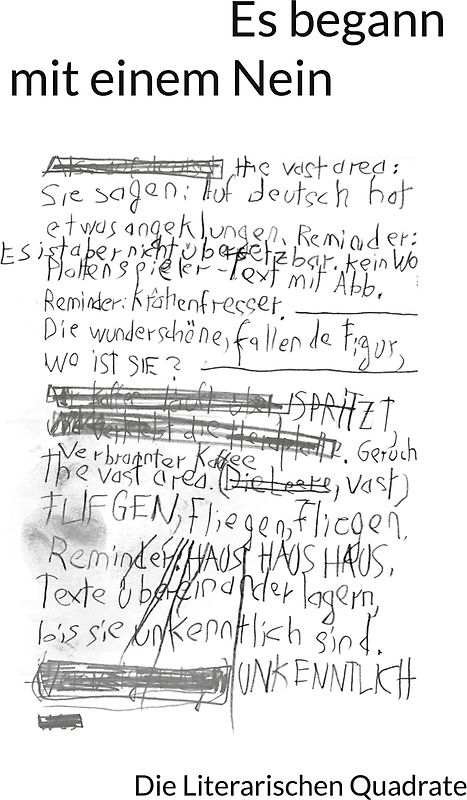 Es begann
mit einem Nein
the vast area:
Sie sagen: Auf deutsch hat
etwas angeklungen. Reminder:
Es ist aber nicht übersetzbar. kein Wo
Plattenspieler-Text mit Abb.
Reminder: Krähenfresser.
Die wunderschöne, fallende Figur,
WO iST SIE?
SPRiTZT,
Geruch
Verbrannter Kaffee
the vast area. (Die Leere, vast)
FLIEGEN, Fliegen, Fliegen.
Reminder: HAUS HAUS HAUS,
Texte übereinander lagern,
bis sie unkenntlich sind.
UNKENNTLICH
Die Literarischen Quadrate